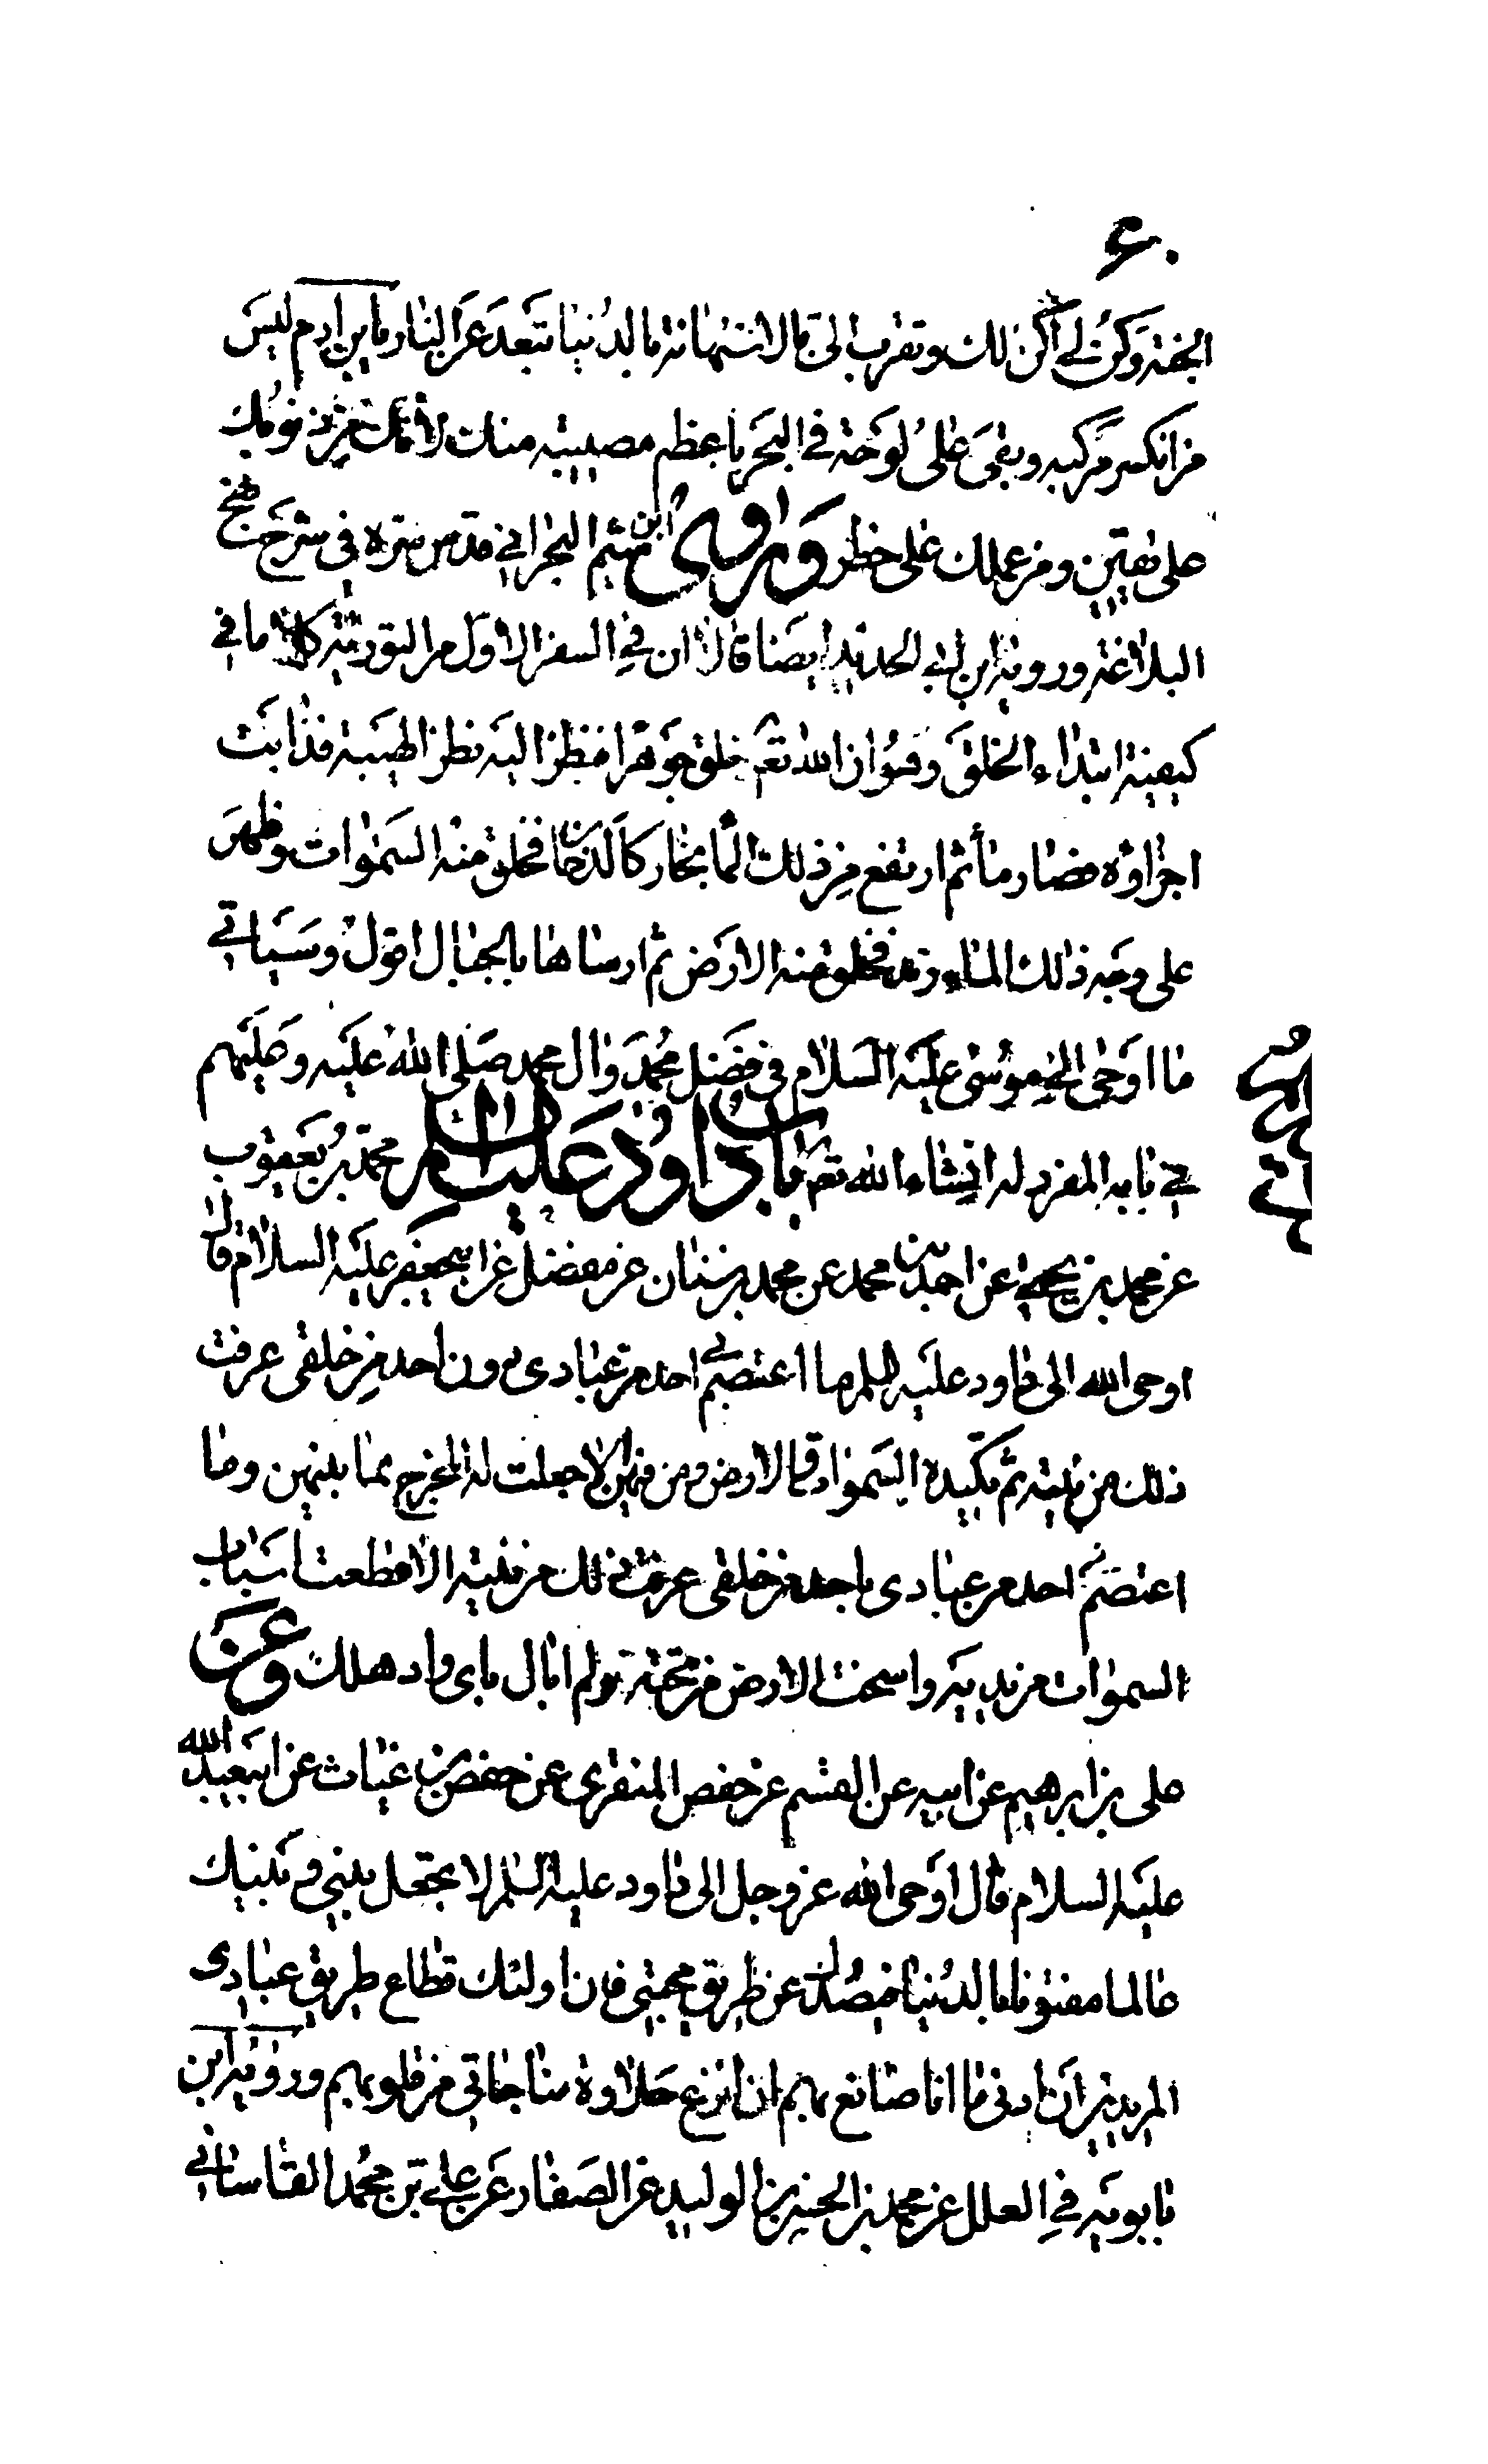 ۶۰
الجنة وكن لي اكن لك وتقرب الي بالاستهانة بالدنيا تبعد عن النار يابن ادم ليس
من انكسر مركبه وبقى على لوحة في البحر باعظم مصيبة منك لانك من ذنوبك
على يقين ومن عملك على خطر وروى ابن ميثم البحراني قدس سره في شرح نهج
البلاغة ورويه ابن ابي الحديد ايضا قالا ان في السفر الاول من التورية كان ما في
كيفية ابتداء الخلق وهو ان الله تعم خلق جوهرا فنظر اليه نظر الهيبة فذابت
اجزاؤه فصار ماء ثم ارتفع من ذلك الماء بخار كالدخان فخلق منه السموات وظهر
على وجه ذلك الماء زبد فخلق منه الارض ثم ارساها بالجبال اقول وسياتي
ما اوحى الى موسى عليه السلام في فضل محمد وال محمد صلى الله عليه وعليهم
في بابه المفرد له انشاء الله تعم باب داود عليه السلام محمد بن يعقوب
عن محمد بن يحيى عن احمد بن محمد عن محمد بن سنان عن مفضل عن ابيجعفر عليه السلام قال
اوحى الله الى داود عليه السلم ما اعتصم بي احد من عبادى دون احد من خلقى عرفت
ذلك من نيته ثم تكيده السموات والارض ومن فيهن الا جعلت له المخرج مما بينهن وما
اعتصم احد من عبادى باحد من خلقى عرفت ذلك من نيته الا قطعت اسباب
السموات من يديه واسخت الارض من تحته ولم ابال باى واد هلك وعن
على بن ابرهيم عن ابيه عن القسم عن حفص المنقرى عن حفص بن غياث عن ابيعبد الله
عليه السلام قال اوحى الله عز وجل الى داود عليه السلم لا تجعل بينى وبينك
عالما مفتونا بالدنيا فيصدك عن طريق محبتى فان اولئك قطاع طريق عبادى
المريدين ان ادنى ما انا صانع بهم ان انزع حلاوة مناجاتي من قلوبهم ورويه ابن
بابويه في العلل عن محمد بن الحسن بن الوليد عن الصفار عن على بن محمد القاساني